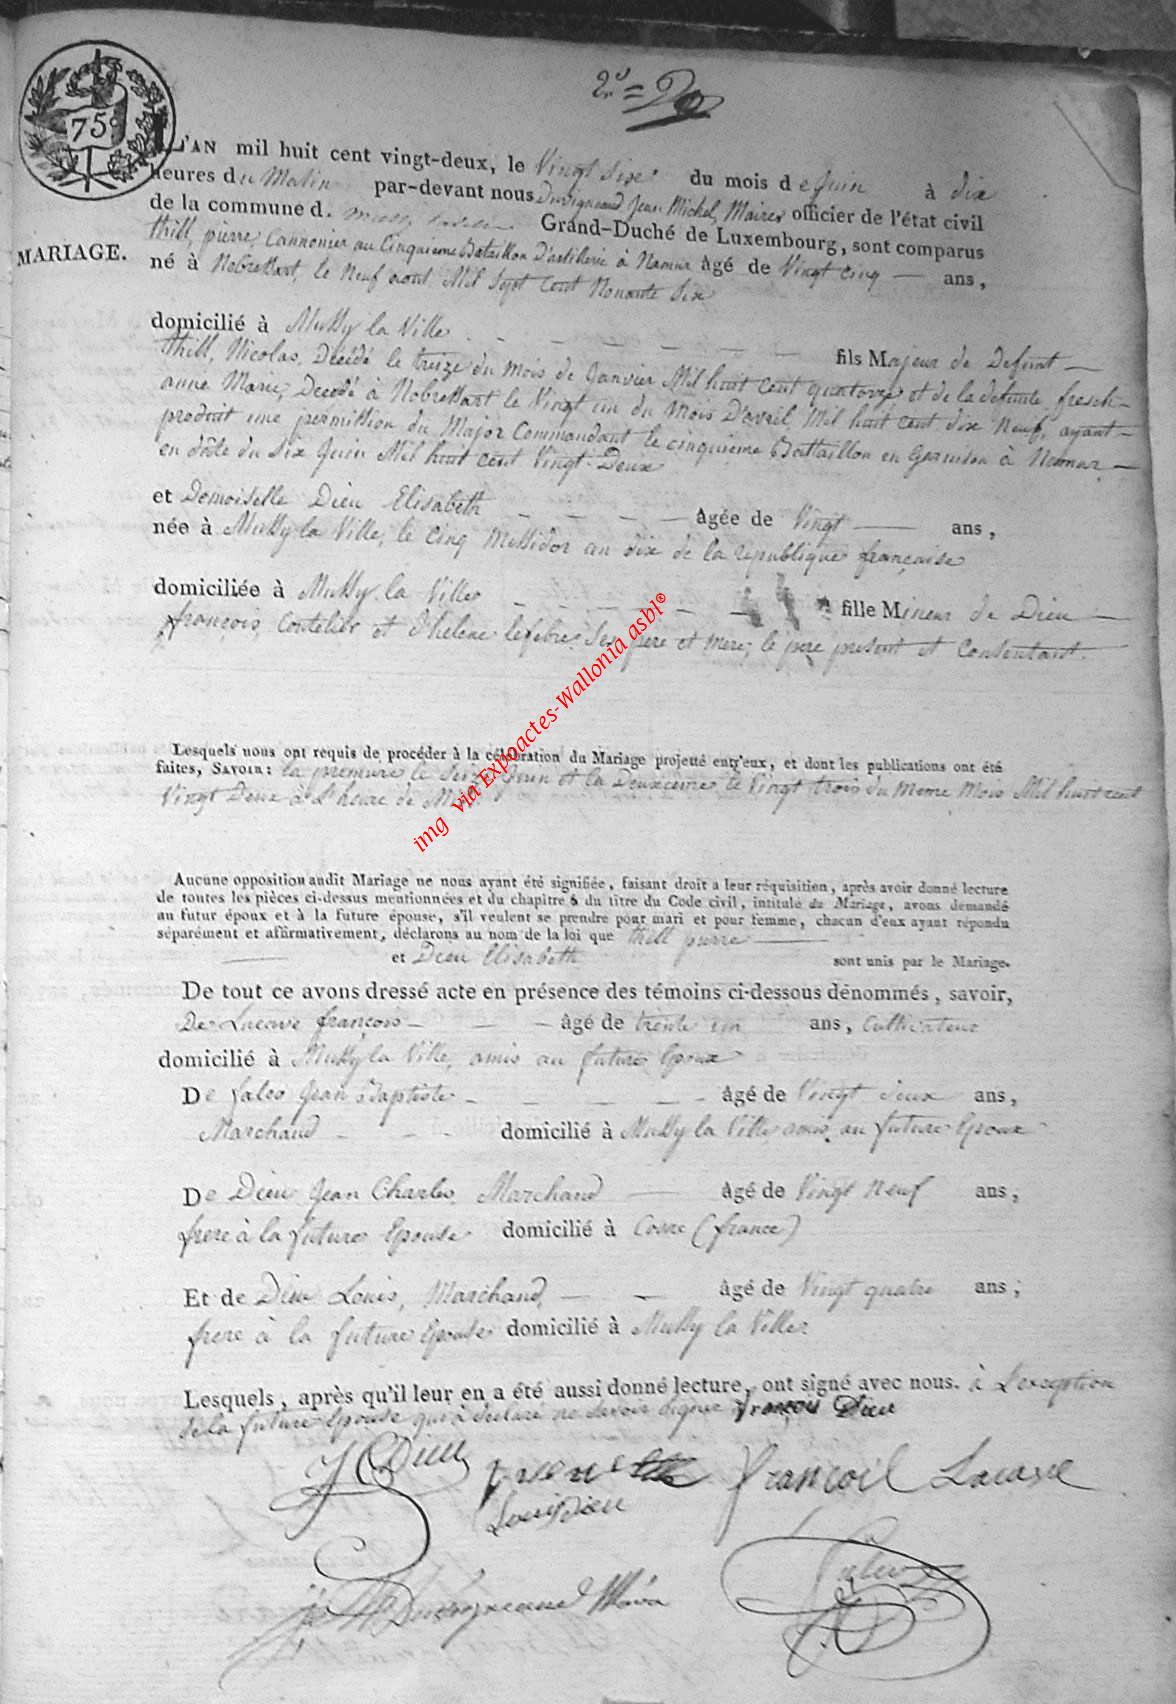 75c
L'AN mil huit cent vingt-deux, le Vingt Six du mois de Juin à dix
heures du Matin par-devant nous Duvigneaud Jean Michel, Maire officier de l'état civil
de la commune d. Grand-Duché de Luxembourg, sont comparus
MARIAGE.
thill, pierre, Cannonier au Cinquieme Bataillon D'artillerie à Namur âgé de Vingt Cinq ans,
né à Nobressart, le Neuf aout Mil Sept Cent Nonante Six
domicilié à Mussy la Ville fils Majeur de Defunt
thill, Nicolas, Décédé le treize du Mois de Janvier Mil huit Cent quatorze et de la defunte fresch
anne Marie, Decedé à Nobressart le Vingt un du Mois D'avril Mil huit Cent dix Neuf, ayant
produit une permission du Major Commandant le cinquieme Battaillon en Garnison à Namur
en date du Six Juin Mil huit Cent Vingt Deux
et Demoiselle Dieu Elisabeth Agée de Vingt ans,
née à Mussy la Ville, le Cinq Messidor an dix de la republique française
domiciliée à Mussy la Ville fille Mineur de Dieu
françois, Coutelier et d'helene lefebre Ses pere et mere, le pere present et Consentant.
Lesquels nous ont requis de procéder à la célébration du Mariage projetté entr'eux, et dont les publications ont été
faites, SAVOIR: la premiere le Seize Juin et la Deuxieme le Vingt trois du meme Mois Mil huit cent
Vingt Deux à L'heure de Midi
Aucune opposition audit Mariage ne nous ayant été signifiée, faisant droit a leur réquisition, après avoir donné lecture
de toutes les pièces ci-dessus mentionnées et du chapitre 6 du titre du Code civil, intitulé du Mariage, avons demandé
au futur époux et à la future épouse, s'il veulent se prendre pour mari et pour femme, chacun d'eux ayant répondu
séparément et affirmativement, déclarons au nom de la loi que thill pierre
et Dieu Elisabeth sont unis par le Mariage.
De tout ce avons dressé acte en présence des témoins ci-dessous dénommés, savoir,
De Lacave françois âgé de trente un ans, Cultivateur
domicilié à Mussy la Ville, amis au future Epoux
De falco Jean Baptiste âgé de Vingt deux ans,
Marchand domicilié à Mussy la Ville amis au future Epoux
De Dieu Jean Charles, Marchand âgé de Vingt Neuf ans,
frere à la future Epouse domicilié à Cosne (france)
Et de Dieu Louis, Marchand, âgé de Vingt quatre ans;
frere à la future Epouse domicilié à Mussy la Ville
Lesquels, après qu'il leur en a été aussi donné lecture, ont signé avec nous. à L'exception
de la future Epouse qui à declaré ne Savoir Signer françois Dieu
JC Dieu francoil Lacave
Louis dieu
Duvigneaud Maire
img via Expoactes-Wallonia asbl®